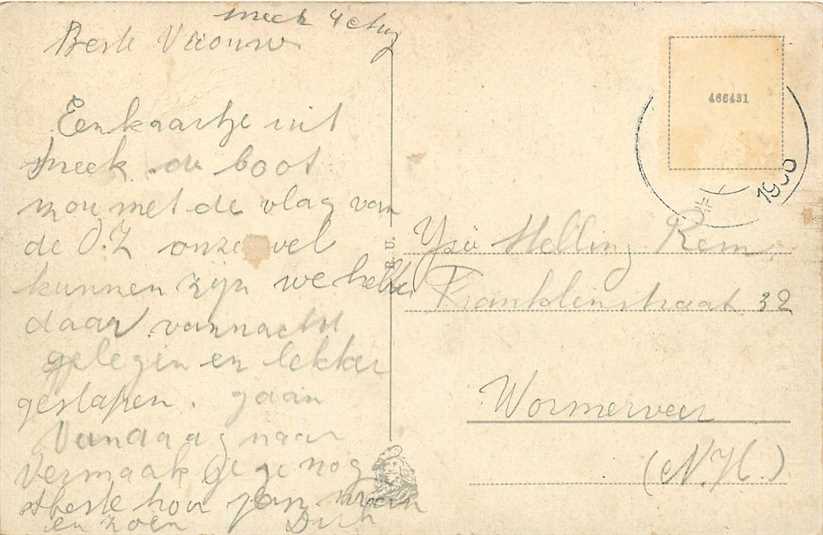 Sneek 4 Aug
Beste Vrouw
Een kaartje uit
Sneek de boot
zou met de vlag van
de O.Z onze wel
kunnen zijn we hebben
daar vannacht
gelegen en lekker
geslapen. gaan
Vandaag naar
Vermaak je nog
beste hou
en zoen Dirk
466431
19
Helling Rem
Franklinstraat 32
Wormerveer
(N.H.)